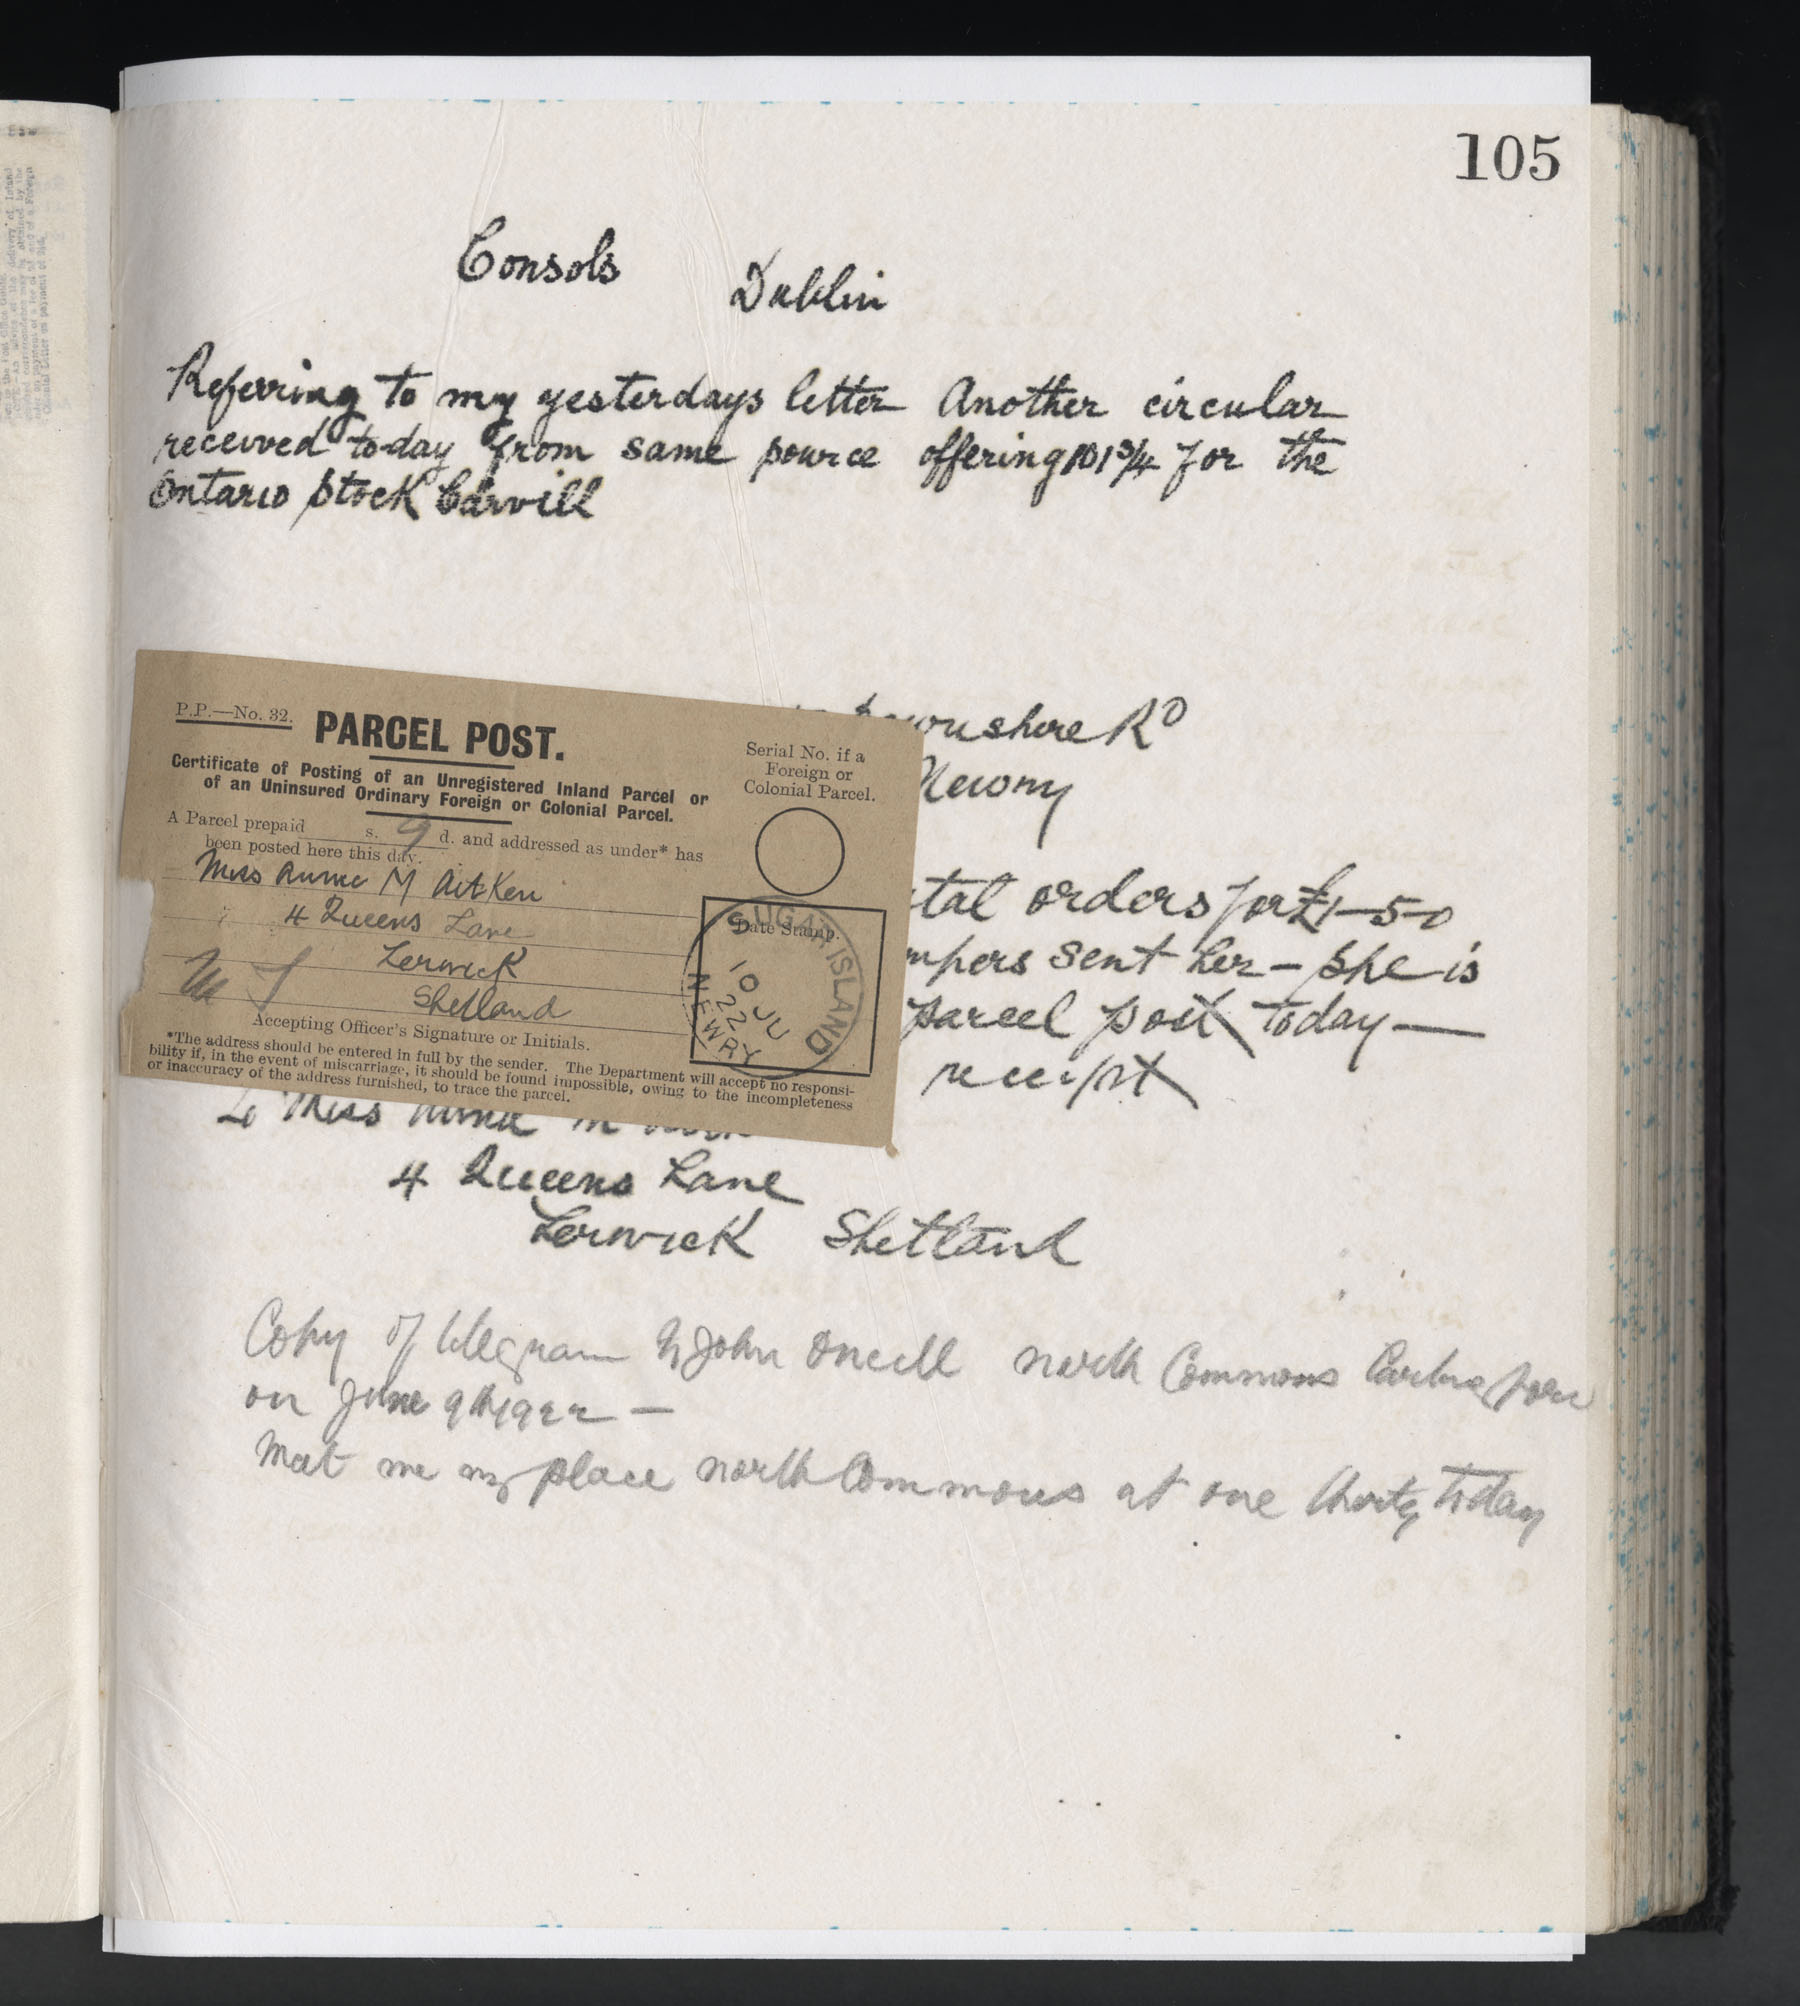 105
Consols
Dublin
Referring to my yesterdays letter Another circular
received to-day from same source offering 101¾ for the
Ontario Stock Carvill
onshire Rd
Newry
tal orders for £1-5-0
mpers sent her - She is
parcel post today —
receipt
P.P.—No. 32.
PARCEL POST.
Certificate of Posting of an Unregistered Inland Parcel or
of an Uninsured Ordinary Foreign or Colonial Parcel.
Serial No. if a
Foreign or
Colonial Parcel.
A Parcel prepaid s. 9 d. and addressed as under* has
been posted here this day.
Miss Annie M Aitken
4 Queens Lane
Lerwick
Shetland
Accepting Officer's Signature or Initials.
Date Stamp.
SUGAR ISLAND
10 JU
22
NEWRY
*The address should be entered in full by the sender. The Department will accept no responsi-
bility if, in the event of miscarriage, it should be found impossible, owing to the incompleteness
or inaccuracy of the address furnished, to trace the parcel.
To Miss Annie M
4 Queens Lane
Lerwick Shetland
Copy of telegram to John Oneill North Commons
on June 9th 1922 —
Meet me my place North Commons at one thirty today